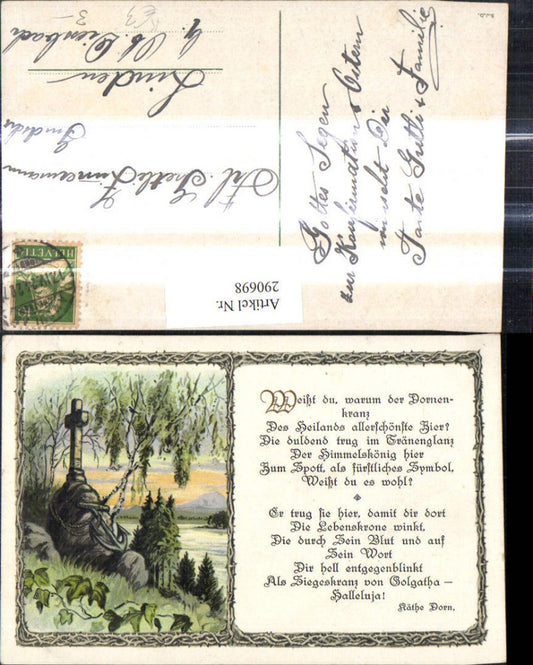 B.J.D.
Gottes Segen
zur Konfirmation & Ostern
wünscht Dir
Tante Gritli & Familie
Frl. Greti Zimmermann
Linden
HELVETIA
Artikel Nr.
290698
Weißt du, warum der Dornen-
kranz
Des Heilands allerschönste Zier?
Die duldend trug im Tränenglanz
Der Himmelskönig hier
Zum Spott, als fürstliches Symbol,
Weißt du es wohl?
Er trug sie hier, damit dir dort
Die Lebenskrone winkt,
Die durch Sein Blut und auf
Sein Wort
Dir hell entgegenblinkt
Als Siegeskranz von Golgatha —
Halleluja!
Käthe Dorn.